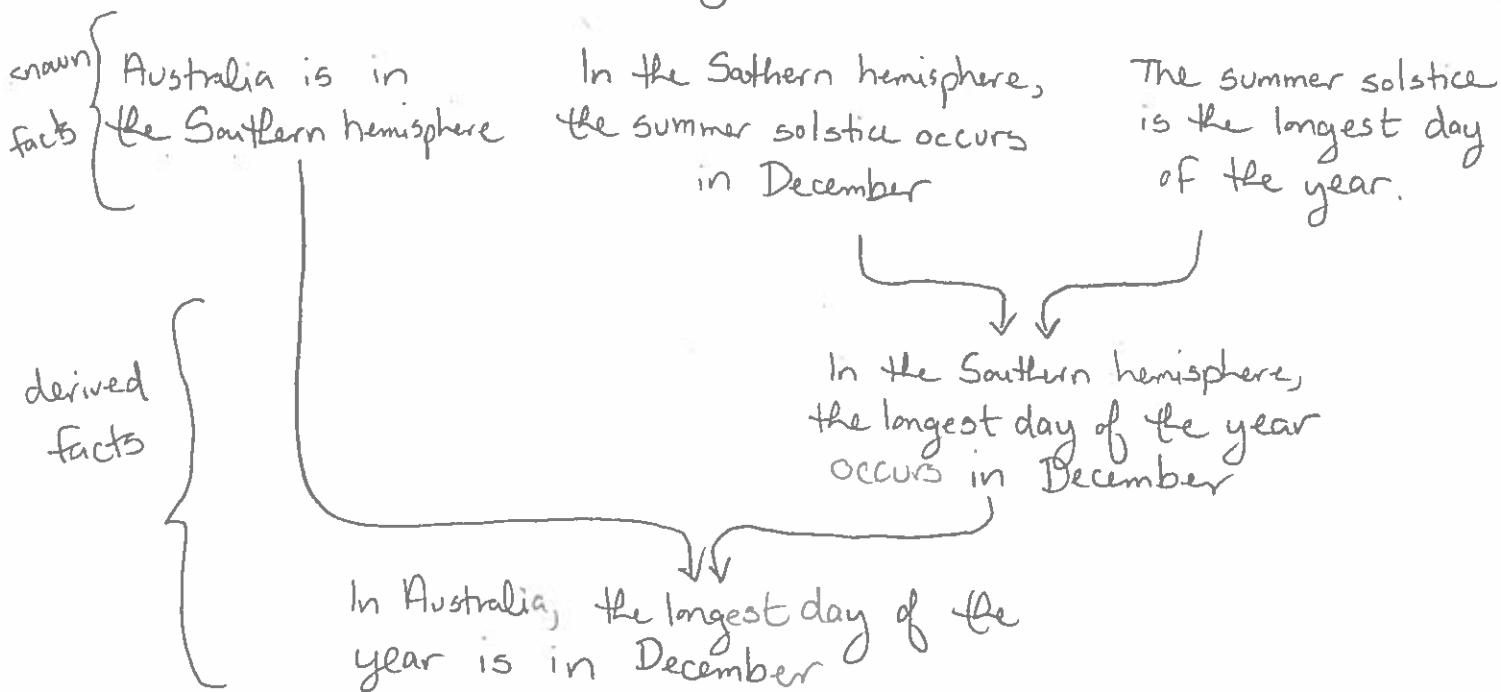 known
facts
Australia is in
the Southern hemisphere
In the Southern hemisphere,
the summer solstice occurs
in December
The summer solstice
is the longest day
of the year.
derived
facts
In the Southern hemisphere,
the longest day of the year
occurs in December
In Australia, the longest day of the
year is in December